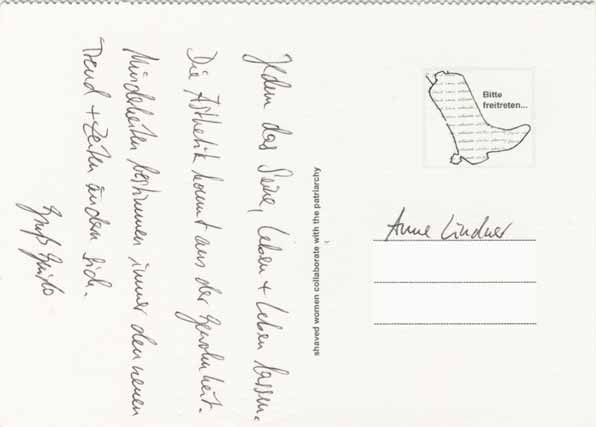 Jedem das Seine, Leben + Leben lassen.
Die Ästhetik kommt aus der Gewohnheit.
Minderheiten bestimmen immer den neuen
Trend + Zeiten ändern sich.
Gruß Guido
shaved women collaborate with the patriarchy
Bitte
freitreten...
Anne Lindner